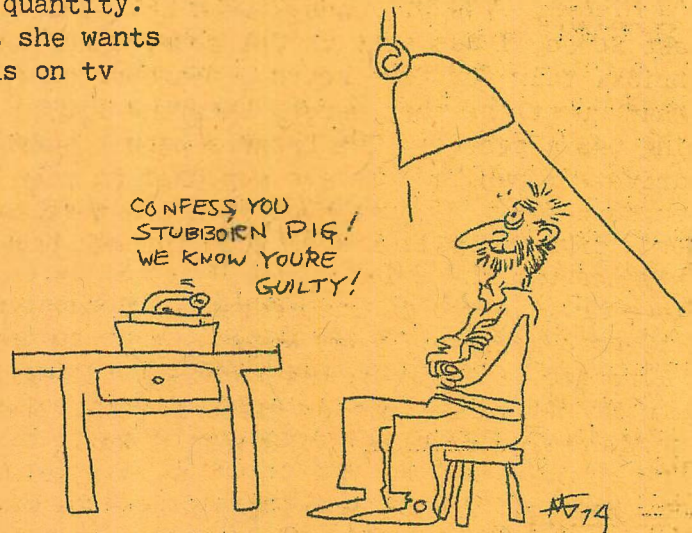 quantity.
she wants
s on tv
CONFESS YOU
STUBBORN PIG!
WE KNOW YOU'RE
GUILTY!
74